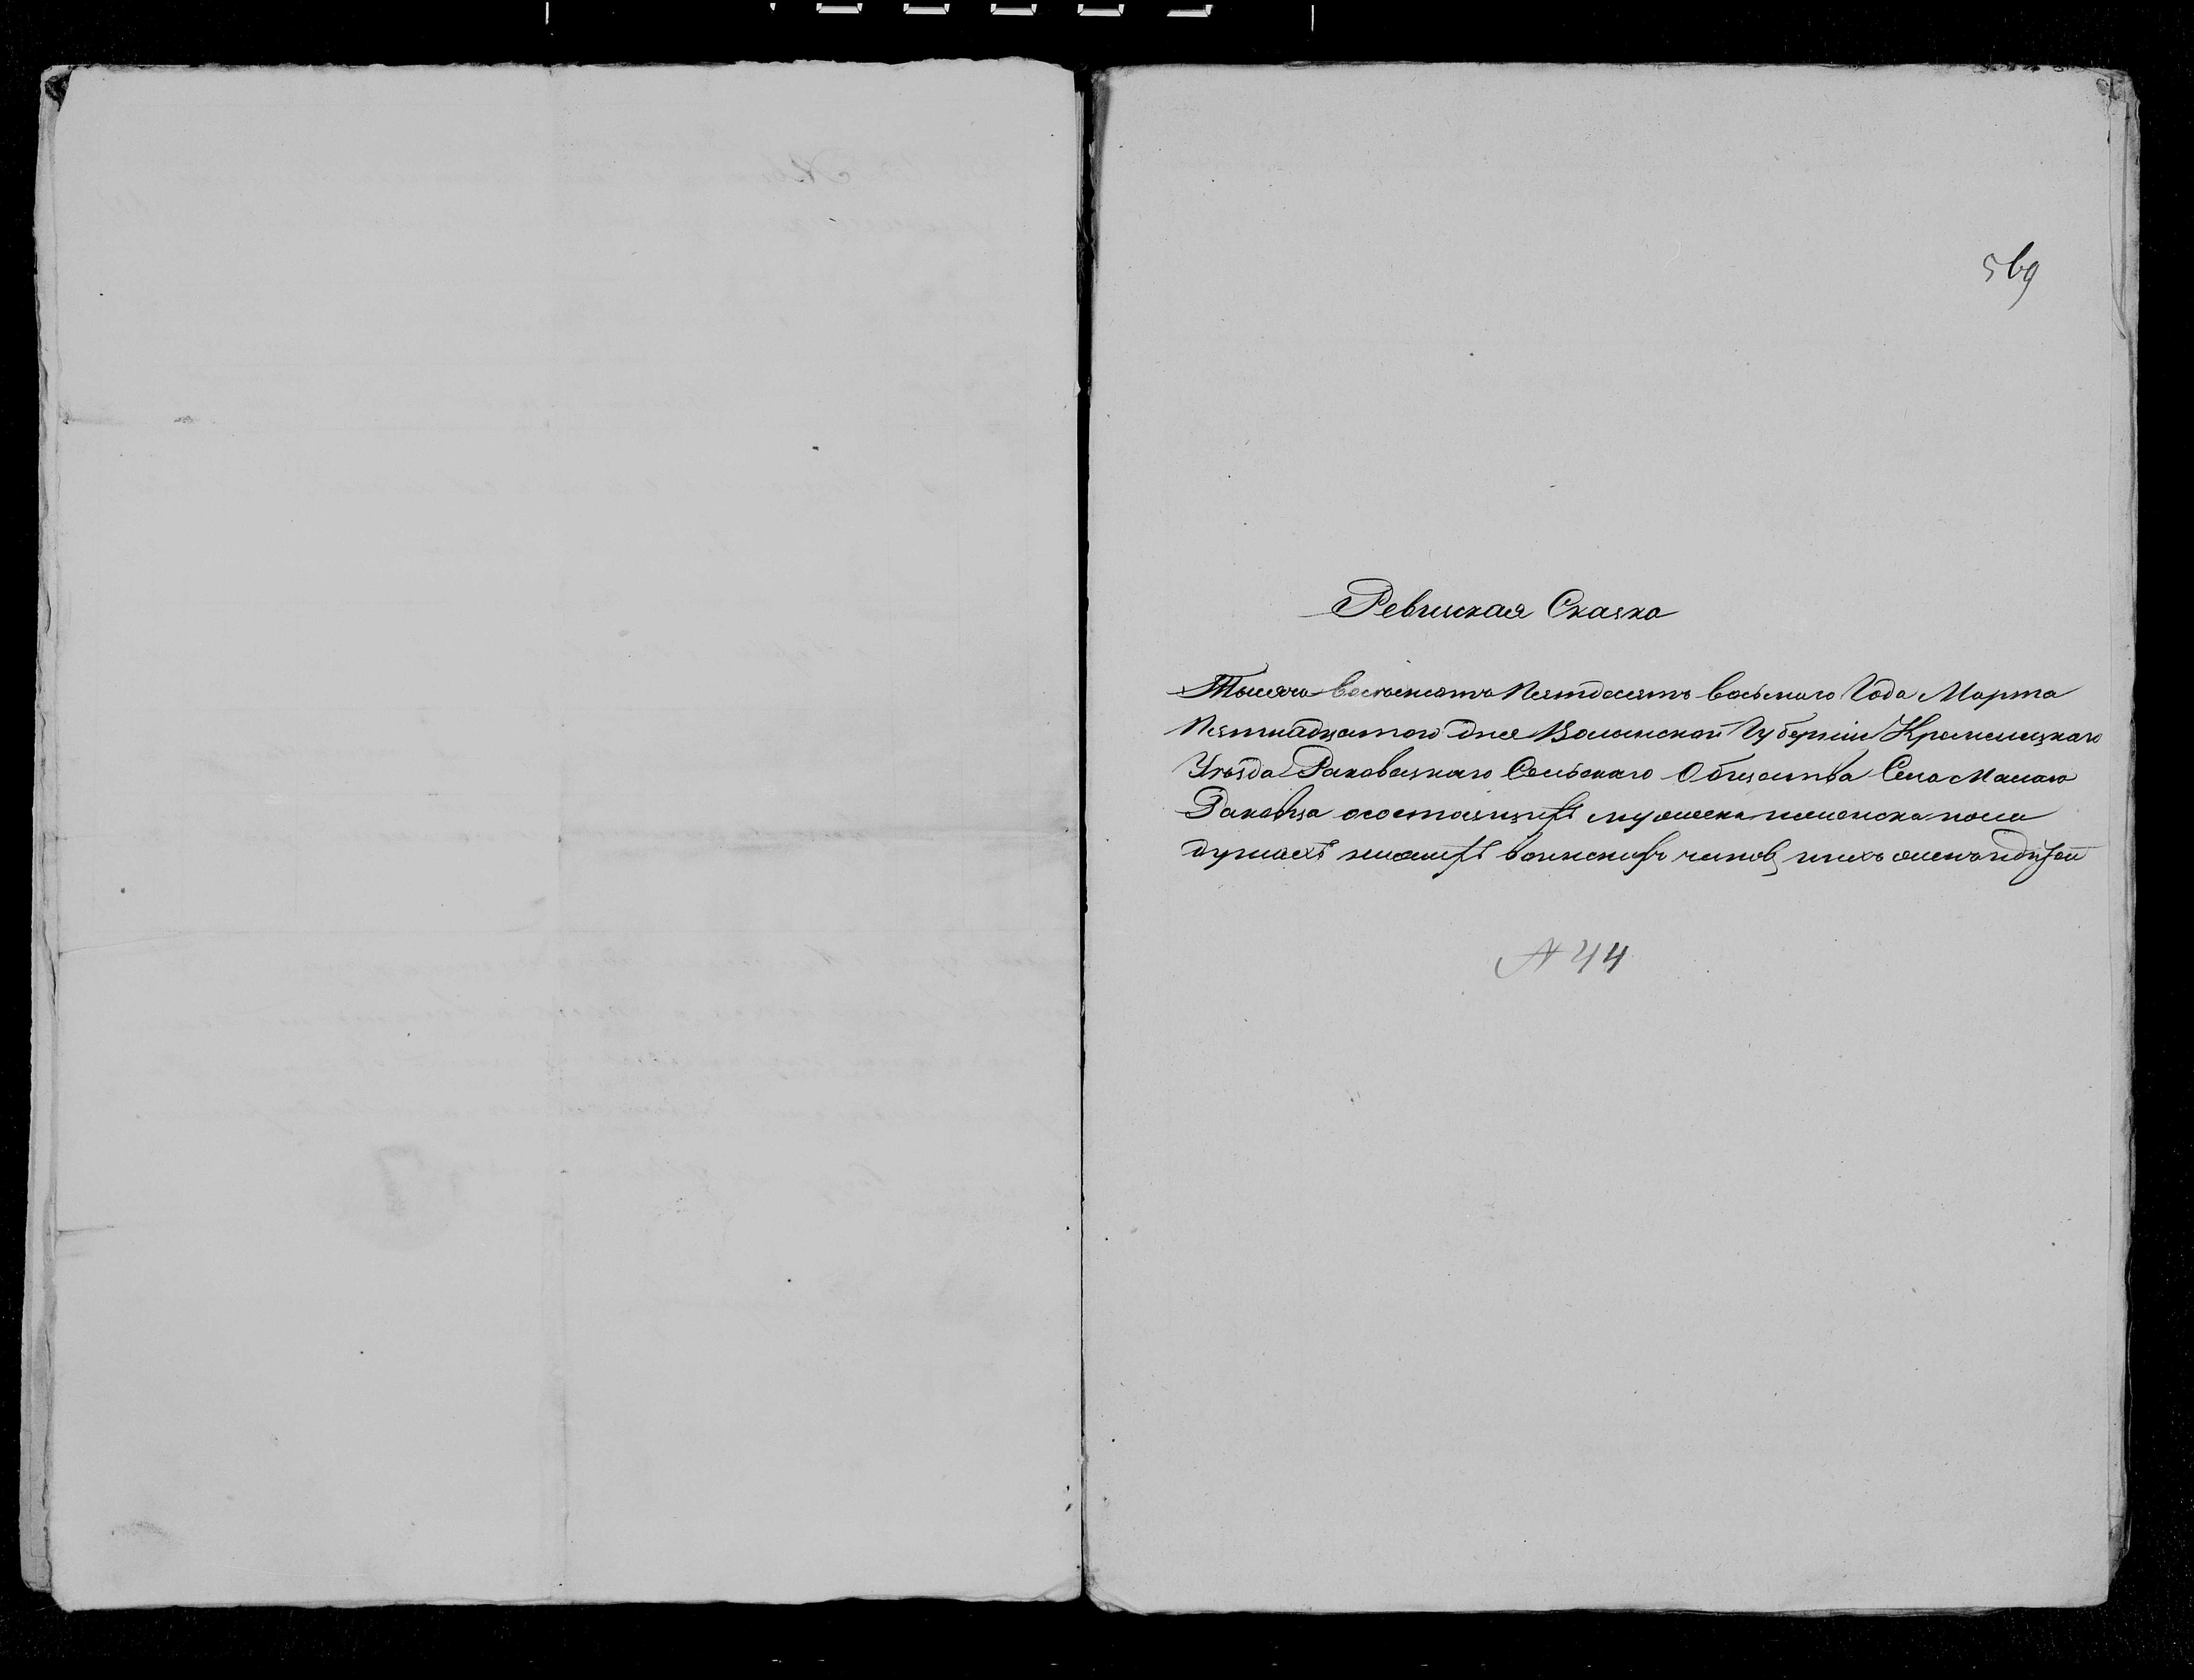 569
Ревиская Сказка
Тысяча восемсотъ Пятдесятъ восьмаго Года Марта
Пятнадцатого дня Волынской Губернiи Кременецкаго
Уѣзда Раковецкаго Сельскаго Общества Села Малаго
Раковца осостоящихъ мужеска иженска пола
душахъ нижнихъ воинскихъ чиновъ ихъ женъ идѣтей
№ 44